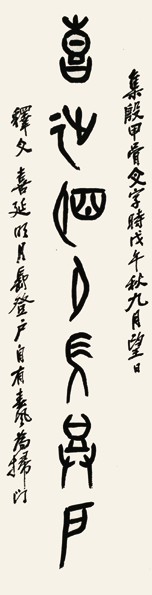 集殷甲骨文字時戊午秋九月望日
喜延明月長登戶
釋文喜延明月長登戶自有春風為掃門